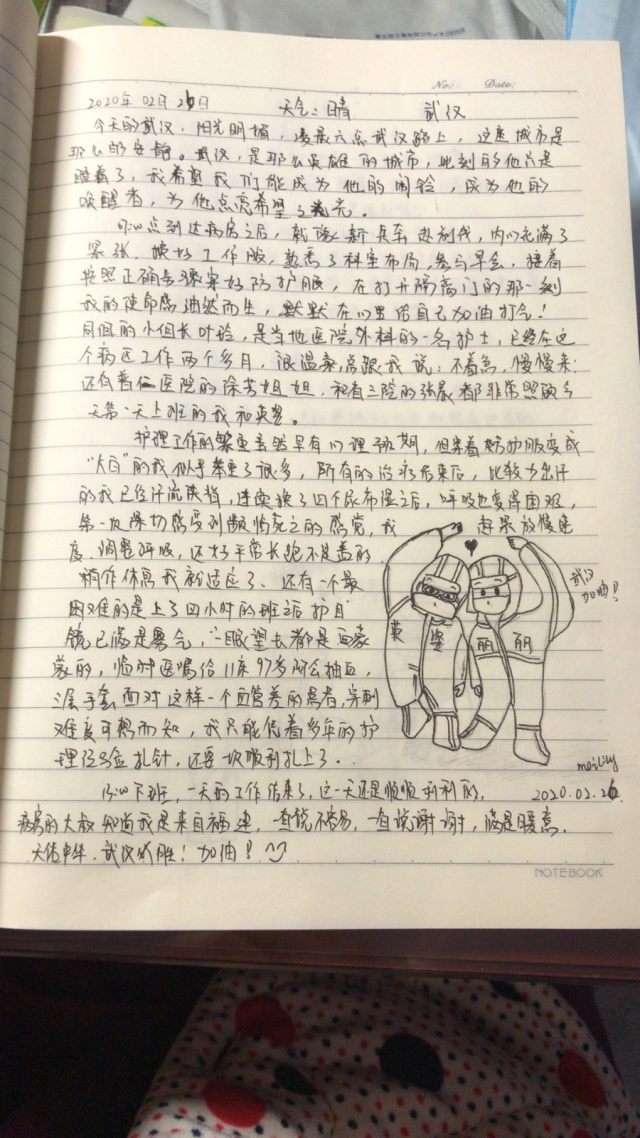 No: Date:
2020年02月26日 天气：晴 武汉
今天的武汉，阳光明媚，凌晨六点武汉路上，这座城市是
那么的安静。武汉，是那么英雄的城市，此刻的他只是
睡着了，我希望我们能成为他的闹铃，成为他的
唤醒者，为他点亮希望之光。
点到达病房之后，就像新兵奔赴战伐，内心充满了
紧张，换好工作服，熟悉了科室布局，参与早会，接着
按照正确步骤穿好防护服，在打开隔离门的那一刻
我的使命感油然而生，默默在心里给自己加油打气！
同组的小组长叶玲，是当地医院外科的一名护士，已经在这
个病区工作两个多月，很温柔总跟我说：不着急，慢慢来；
还有普仁医院的徐芳姐姐，和有三院的张 都非常照顾今
天第一天上班的我和英姿。
护理工作的繁重虽然早有心理预期，但穿着防护服变成
“大白”的我似乎笨重了很多，所有的治疗结束后，比较少出汗
的我已经汗流浃背，连续换了四个尿布湿之后，呼吸也变得困难，
第一次深切感受到濒临死亡的感觉，我 赶紧放慢速
度，调整呼吸，还好平常长跑不是盖的，
稍作休息我就适应了、还有一个最
困难的是上了四小时的班之后护目
镜已满是雾气，一眼望去都是白蒙
蒙的，临时医嘱给11床97岁阿公抽血，
三层手套面对这样一个血管差的患者，穿刺
难度可想而知，我只能凭着多年的护
理经验扎针，还要一次顺利扎上了．
下班，一天的工作结束了，这一天还是顺顺利利的，
病房的大叔知道我是来自福建，一直说不容易，一直说谢谢，满是暖意．
天佑中华．武汉必胜！加油！
英姿 丽丽
武汉
加油！
meilily
2020.02.26
NOTEBOOK